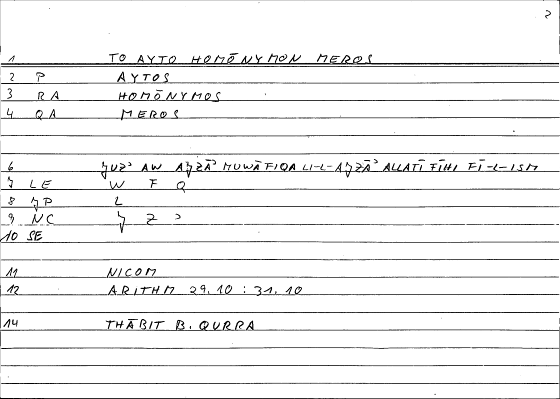 2
1 TO AYTO HOMŌNYMON MEROS
2 P AYTOS
3 RA HOMŌNYMOS
4 QA MEROS
6 JUZʾ AW AJZĀʾ MUWĀFIQA LI-L-AJZĀʾ ALLATĪ FĪHI FĪ-L-ISM
7 LE W F Q
8 JP L
9 NC J Z ʾ
10 SE
11 NICOM
12 ARITHM 29.10 : 31.10
14 THĀBIT B. QURRA